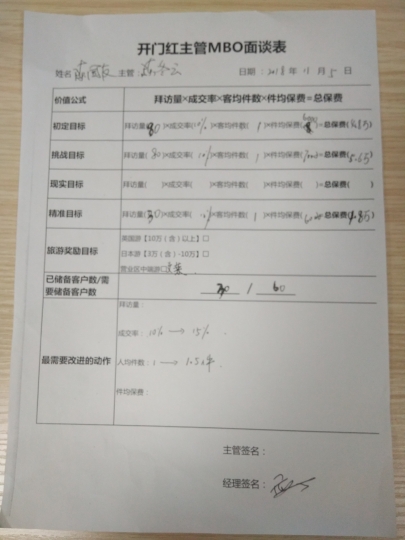 开门红主管MBO面谈表
姓名 主管 日期：2018年11月5日
价值公式 拜访量×成交率×客均件数×件均保费=总保费
初定目标 拜访量(80)×成交率(10%)×客均件数(1)×件均保费( )=总保费( )
挑战目标 拜访量( )×成交率(10%)×客均件数(1)×件均保费( )=总保费( )
现实目标 拜访量( )×成交率( )×客均件数( )×件均保费( )=总保费( )
精准目标 拜访量( )×成交率( )×客均件数(1)×件均保费( )=总保费( )
旅游奖励目标
美国游【10万（含）以上】□
日本游【3万（含）-10万】□
营业区中端游□
已储备客户数/需要储备客户数 30 / 60
最需要改进的动作
拜访量：
成交率：10% → 15%
人均件数：1 → 1.5件
件均保费：
主管签名：
经理签名：